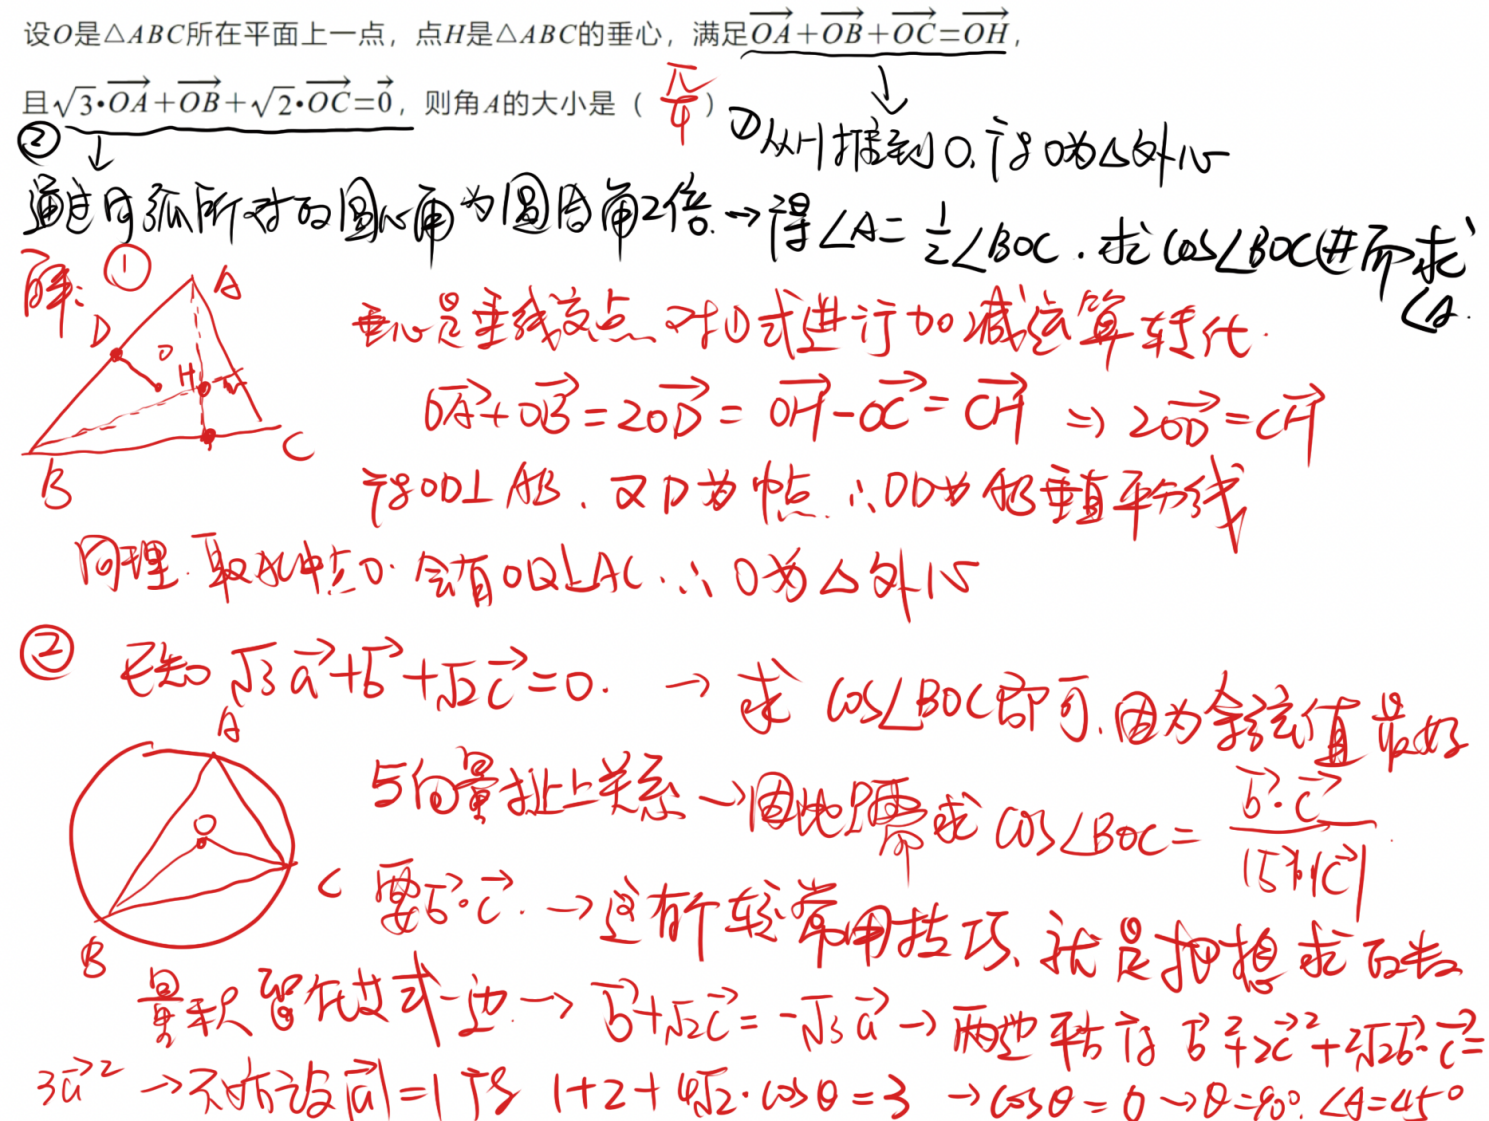 设O是△ABC所在平面上一点，点H是△ABC的垂心，满足$\overrightarrow{OA}+\overrightarrow{OB}+\overrightarrow{OC}=\overrightarrow{OH}$，
且$\sqrt{3}\cdot\overrightarrow{OA}+\overrightarrow{OB}+\sqrt{2}\cdot\overrightarrow{OC}=\vec{0}$，则角A的大小是（ $\frac{\pi}{4}$ ）
① 从H推到O.得O为△外心
② 通过同弧所对的圆心角为圆周角2倍.→得∠A=$\frac{1}{2}$∠BOC.求cos∠BOC进而求
∠A.
解: ①
A
D
O
H
B
C
垂心是垂线交点.对①式进行加减运算转化.
$\overrightarrow{OA}+\overrightarrow{OB}=2\overrightarrow{OD}=\overrightarrow{OH}-\overrightarrow{OC}=\overrightarrow{CH}$ ⇒ $2\overrightarrow{OD}=\overrightarrow{CH}$
得OD⊥AB.又D为中点.∴OD为AB垂直平分线
同理.取AC中点Q.会有OQ⊥AC.∴O为△外心
② 已知$\sqrt{3}\vec{a}+\vec{b}+\sqrt{2}\vec{c}=0$. → 求 cos∠BOC即可.因为余弦值最好
A
O
B
C
与向量扯上关系→因此只需求cos∠BOC=$\frac{\vec{b}\cdot\vec{c}}{|\vec{b}||\vec{c}|}$.
要$\vec{b}\cdot\vec{c}$.→这有个较常用技巧、就是把想求的数
量积留在等式一边→$\vec{b}+\sqrt{2}\vec{c}=-\sqrt{3}\vec{a}$→两边平方得 $\vec{b}^2+2\vec{c}^2+2\sqrt{2}\vec{b}\cdot\vec{c}=$
$3\vec{a}^2$ →不妨设$|\vec{a}|=1$得 $1+2+4\sqrt{2}\cdot\cos\theta=3$ →cosθ=0→θ=90°.∠A=45°